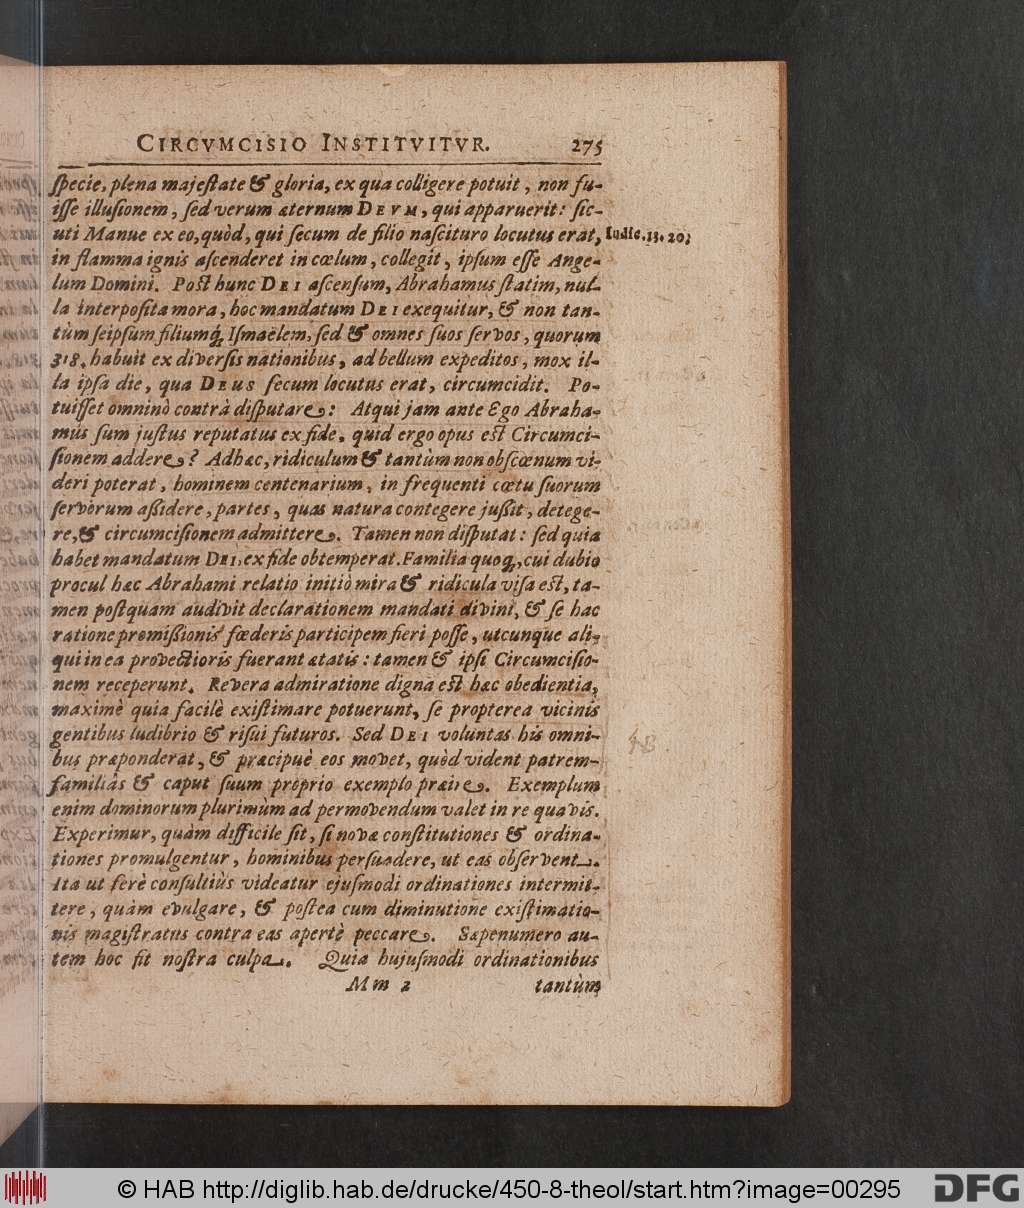 CIRCVMCISIO INSTITVITVR. 275
ſpecie, plena majeſtate & gloria, ex qua colligere potuit, non fu-
iſſe illuſionem, ſed verum æternum DEVM, qui apparuerit: ſic-
uti Manue ex eo, quòd, qui ſecum de filio naſcituro locutus erat, Iudic. 13. 20;
in flamma ignis aſcenderet in cœlum, collegit, ipſum eſſe Ange-
lum Domini. Poſt hunc DEI aſcenſum, Abrahamus ſtatim, nul-
la interpoſita mora, hoc mandatum DEI exequitur, & non tan-
tùm ſeipſum filiumq́; Iſmaëlem, ſed & omnes ſuos ſervos, quorum
318. habuit ex diverſis nationibus, ad bellum expeditos, mox il-
la ipſa die, qua DEUS ſecum locutus erat, circumcidit. Po-
tuiſſet omninò contrà diſputare: Atqui jam ante Ego Abraha-
mus ſum juſtus reputatus ex fide, quid ergo opus eſt Circumci-
ſionem addere? Ad hæc, ridiculum & tantùm non obſcœnum vi-
deri poterat, hominem centenarium, in frequenti cœtu ſuorum
ſervorum aßidere, partes, quas natura contegere jußit, detege-
re, & circumciſionem admittere. Tamen non diſputat: ſed quia
habet mandatum DEI, ex fide obtemperat. Familia quoq́;, cui dubio
procul hæc Abrahami relatio initiò mira & ridicula viſa eſt, ta-
men poſtquam audivit declarationem mandati divini, & ſe hac
ratione promißionis fœderis participem fieri poſſe, utcunque ali-
qui in ea provectioris fuerant ætatis: tamen & ipſi Circumciſio-
nem receperunt. Revera admiratione digna eſt hæc obedientia,
maximè quia facilè exiſtimare potuerunt, ſe propterea vicinis
gentibus ludibrio & riſui futuros. Sed DEI voluntas his omni-
bus præponderat, & præcipuè eos movet, quòd vident patrem-
familiâs & caput ſuum proprio exemplo præire. Exemplum
enim dominorum plurimùm ad permovendum valet in re quavis.
Experimur, quàm difficile ſit, ſi novæ conſtitutiones & ordina-
tiones promulgentur, hominibus perſuadere, ut eas obſervent.
Ita ut ferè conſultiùs videatur ejuſmodi ordinationes intermit-
tere, quàm evulgare, & poſtea cum diminutione exiſtimatio-
nis magiſtratus contra eas apertè peccare. Sæpenumero au-
tem hoc fit noſtra culpa. Quia hujuſmodi ordinationibus
Mm 2 tantùm
© HAB http://diglib.hab.de/drucke/450-8-theol/start.htm?image=00295
DFG